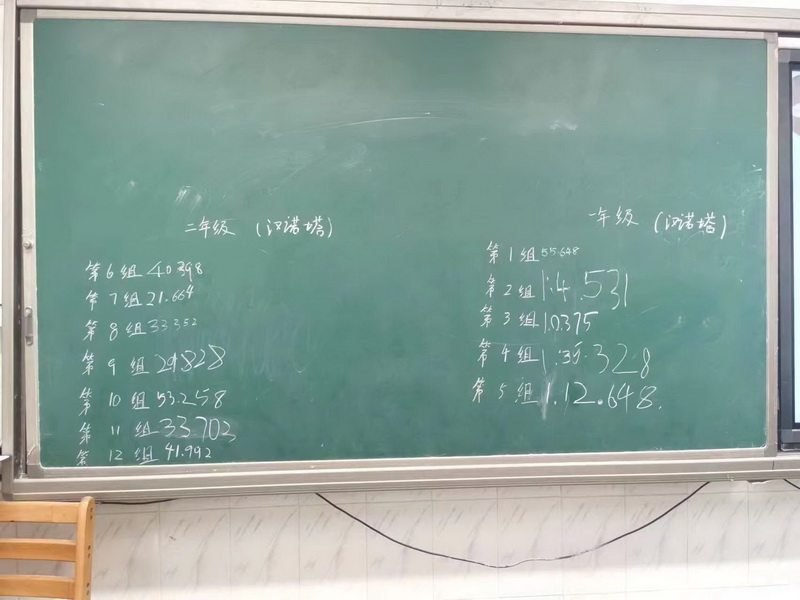 二年级 (汉诺塔)
第6组 40.398
第7组 21.664
第8组 33352
第9组 29828
第10组 53.258
第11组 33703
第12组 41.992
一年级 (汉诺塔)
第1组 55.648
第2组 1:4.531
第3组 1.0375
第4组 1:35.328
第5组 1.12.648.